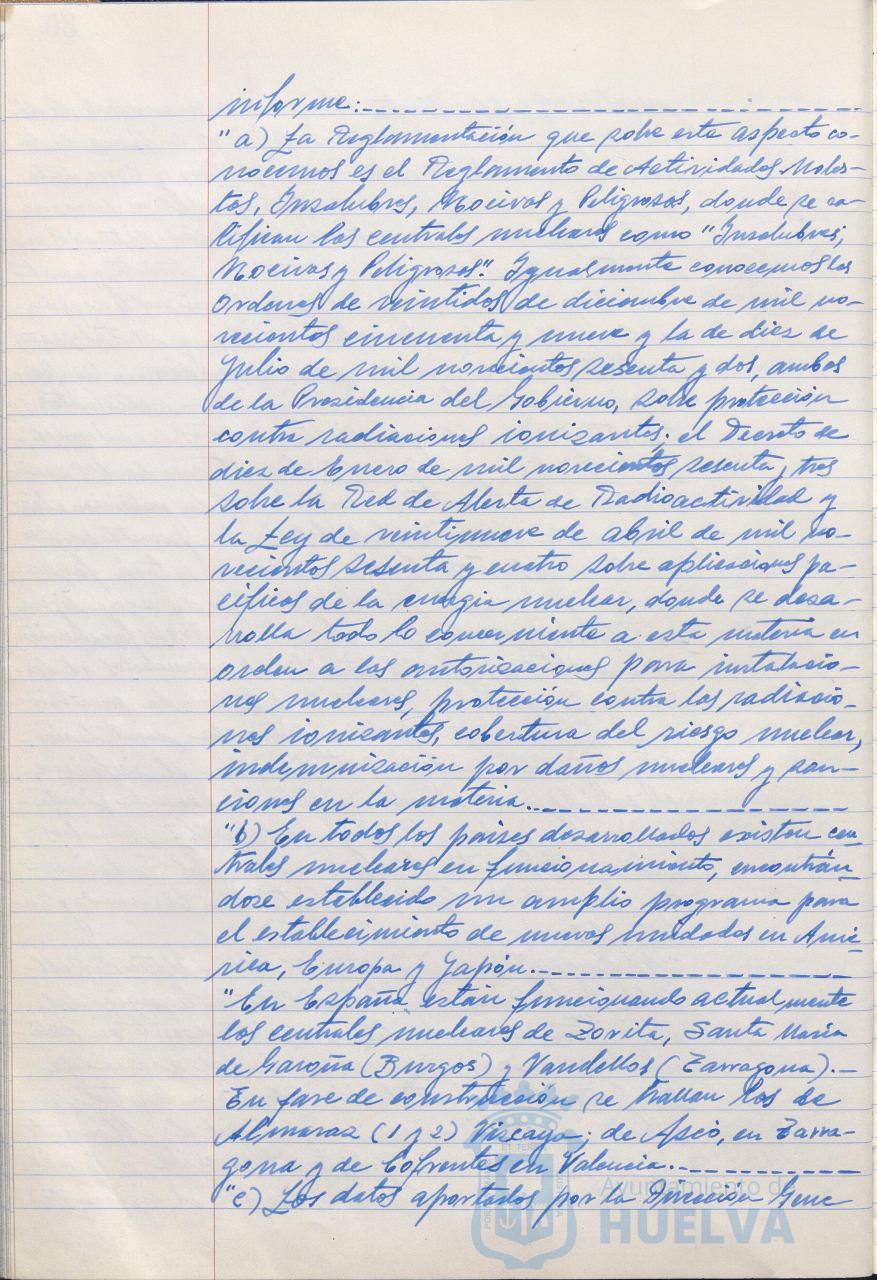 informe:
"a) La Reglamentación que sobre este aspecto co-
nocemos es el Reglamento de Actividades Moles-
tas, Insalubres, Nocivas y Peligrosas, donde se ca-
lifican las centrales nucleares como "Insalubres,
Nocivas y Peligrosas". Igualmente conocemos las
Ordenes de veintidos de diciembre de mil no-
vecientos cincuenta y nueve y la de diez de
Julio de mil novecientos sesenta y dos, ambas
de la Presidencia del Gobierno, sobre protección
contra radiaciones ionizantes; el Decreto de
diez de Enero de mil novecientos sesenta y tres
sobre la Red de Alerta de Radioactividad y
la Ley de veintinueve de abril de mil no-
vecientos sesenta y cuatro sobre aplicaciones pa-
cíficas de la energia nuclear, donde se desa-
rrolla todo lo concerniente a esta materia en
orden a las autorizaciones para instalacio-
nes nucleares, protección contra las radiacio-
nes ionizantes, cobertura del riesgo nuclear,
indemnización por daños nucleares y san-
ciones en la materia.
"b) En todos los paises desarrollados existen cen
trales nucleares en funcionamiento, encontrán
dose establecido un amplio programa para
el establecimiento de nuevas unidades en Amé
rica, Europa y Japón.
"En España están funcionando actualmente
las centrales nucleares de Zorita, Santa María
de Garoña (Burgos) y Vandellos (Tarragona).-
En fase de construcción se hallan las de
Almaraz (1 y 2) Vizcaya; de Ascó, en Tarra-
gona y de Cofrentes en Valencia.
"c) Los datos aportados por la Dirección Gene
Ayuntamiento de
HUELVA